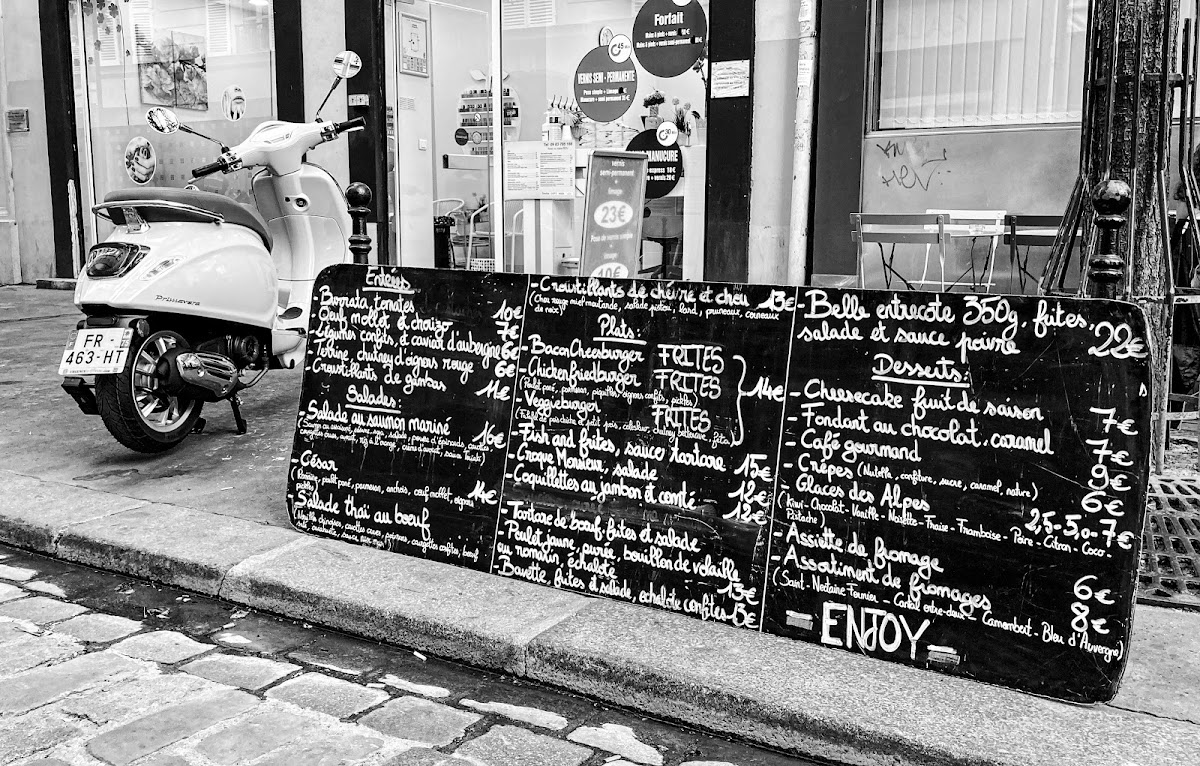 Forfait
45€
VERNIS SEMI-PERMANENT
MANUCURE
vernis
semi-permanent
23€
Pose de vernis
simple
10€
Primavera
FR-
463-HT
Entrées
- Burrata, tomates 10€
- Oeuf mollet et chorizo 7€
- Légumes confits, et caviar d'aubergine 6€
- Terrine, chutney d'oignons rouge 6€
- Croustillants de gambas 11€
Salades:
- Salade au saumon marisé 16€
- César 14€
- Salade thaï au boeuf
- Croustillants de chèvre et chou 13€
(Chou rouge miel moutarde, salade, pistou, lard, pruneaux, cerneaux
de noix)
Plats:
- Bacon Cheesburger FRITES
- Chickenfriedburger FRITES 14€
- Veggieburger FRITES
- Fish and frites, sauce tartare 15€
- Croque Monsieur, salade 12€
- Coquillettes au jambon et comté 12€
- Tartare de bœuf, frites et salade
- Poulet jaune, purée, bouillon de volaille
au romarin, échalote 13€
- Bavette, frites et salade, echalote confites 15€
- Belle entrecote 350g, frites,
salade et sauce poivre 22€
Desserts:
- Cheesecake fruit de saison 7€
- Fondant au chocolat, caramel 7€
- Café gourmand 9€
- Crêpes (Nutella, confiture, sucre, caramel, nature) 6€
- Glaces des Alpes 2,5-5,0-7€
(Kiwi - Chocolat - Vanille - Noisette - Fraise - Framboise - Poire - Citron - Coco
Pistache)
- Assiette de fromage 6€
- Assortiment de fromages 8€
(Saint-Nectaire Fermier - Cantal entre-deux - Camembert - Bleu d'Auvergne)
- ENJOY -